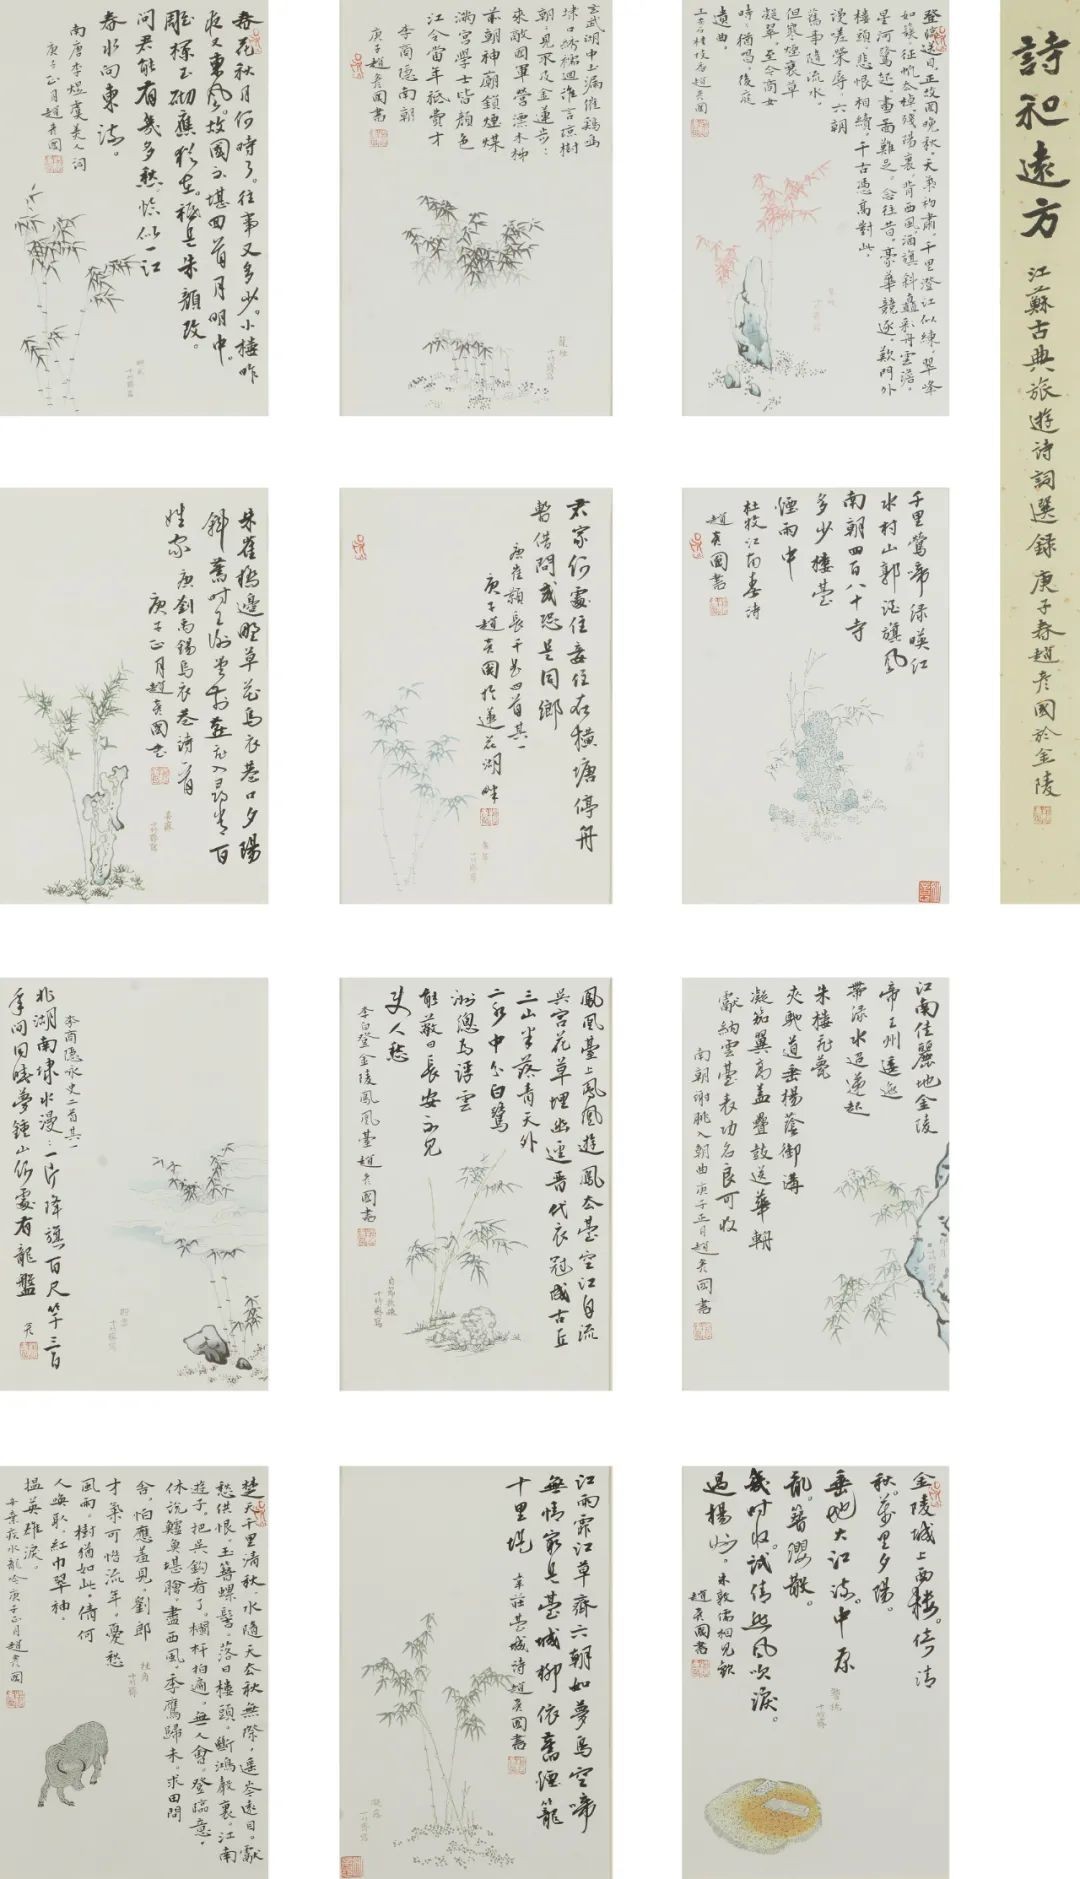 詩和遠方
江蘇古典旅遊詩詞選録 庚子春趙彥國於金陵
登臨送目，正故國晚秋，天氣初肅。千里澄江似練，翠峰
如簇。征帆去棹殘陽裏，背西風酒旗斜矗。彩舟雲淡，
星河鷺起，畫圖難足。念往昔，豪華競逐，歎門外
樓頭，悲恨相續。千古憑高對此，
漫嗟榮辱。六朝
舊事隨流水，
但寒煙衰草
凝翠。至今商女，
時時猶唱，後庭
遺曲。
王安石桂枝香趙彥國
玄武湖中玉漏催鷄鳴
埭口繡襦迴誰言瓊樹
朝朝見不及金蓮步步
來敵國軍營漂木杮
前朝神廟鎖煙煤
滿宮學士皆顏色
江令當年祇費才
李商隱南朝
庚子趙彥國書
春花秋月何時了。往事又多少。小樓昨
夜又東風。故國不堪回首月明中。
雕欄玉砌應猶在。祇是朱顏改。
問君能有幾多愁。恰似一江
春水向東流。
南唐李煜虞美人詞
庚子正月趙彥國
千里鶯啼綠暎紅
水村山郭酒旗風
南朝四百八十寺
多少樓臺
煙雨中
杜牧江南春詩
趙彥國書
君家何處住妾住在橫塘停舟
暫借問或恐是同鄉
唐崔顥長干曲四首其一
庚子趙彥國於蓮花湖畔
朱雀橋邊野草花烏衣巷口夕陽
斜舊時王謝堂前燕飛入尋常百
姓家
唐劉禹錫烏衣巷詩一首
庚子正月趙彥國書
江南佳麗地金陵
帝王州逶迤
帶渌水迢遞起
朱樓飛甍
夾馳道垂楊蔭御溝
凝笳翼高蓋疊鼓送華輈
獻納雲臺表功名良可收
南朝謝朓入朝曲庚子正月趙彥國書
鳳凰臺上鳳凰遊鳳去臺空江自流
吳宮花草埋幽逕晉代衣冠成古丘
三山半落青天外
二水中分白鷺
洲總為浮雲
能蔽日長安不見
使人愁
李白登金陵鳳凰臺趙彥國書
李商隱詠史二首其一
北湖南埭水漫漫一片降旗百尺竿三百
年間同曉夢鍾山何處有龍盤
金陵城上西樓。倚清
秋。萬里夕陽。
垂地大江流。中原
亂。簪纓散。
幾時收。試倩悲風吹淚。
過楊州。朱敦儒相見歡
趙彥國書
江雨霏江草齊六朝如夢鳥空啼
無情最是臺城柳依舊煙籠
十里堤
韋莊臺城詩趙彥國書
楚天千里清秋，水隨天去秋無際，遥岑遠目。獻
愁供恨，玉簪螺髻。落日樓頭，斷鴻聲裏，江南
遊子。把吳鈎看了，欄杆拍遍，無人會，登臨意。
休説鱸魚堪膾。盡西風，季鷹歸未。求田問
舍，怕應羞見，劉郎
才氣可惜流年，憂愁
風雨，樹猶如此。倩何
人喚取，紅巾翠袖，
搵英雄淚。
辛棄疾水龍吟庚子正月趙彥國